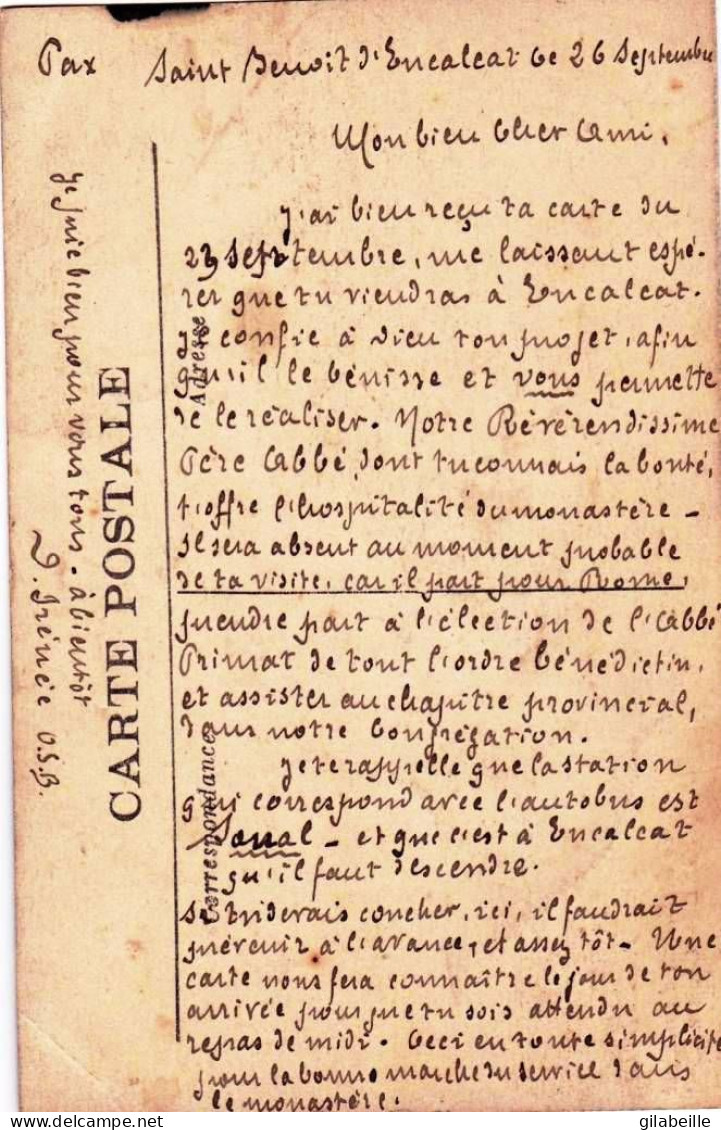 Pax Saint Benoit d'Encalcat le 26 Septembre
Mon bien Cher Ami.
J'ai bien reçu ta carte du
23 Septembre, me laissant espé-
rer que tu viendras à Encalcat.
Je confie à Dieu ton projet, afin
qu'il le bénisse et vous permette
de le réaliser. Notre Révérendissime
Père Abbé, dont tu connais la bonté,
t'offre l'hospitalité du monastère -
Il sera absent au moment probable
de ta visite, car il part pour Rome,
prendre part à l'élection de l'Abbé
Primat de tout l'ordre bénédictin,
et assister au chapitre provincial,
dans notre Congrégation.
Je te rappelle que la station
qui correspond avec l'autobus est
Soual - et que c'est à Encalcat
qu'il faut descendre.
Si tu devais coucher, ici, il faudrait
prévenir à l'avance, et assez tôt - Une
carte nous fera connaître le jour de ton
arrivée pour que tu sois attendu au
repas de midi. Ceci en toute simplicité
pour la bonne marche du service dans
le monastère.
Je prie bien pour vous tous - à bientôt
D. Irénée O.S.B.
CARTE POSTALE
Adresse
Correspondance
delcampe.net
gilabeille